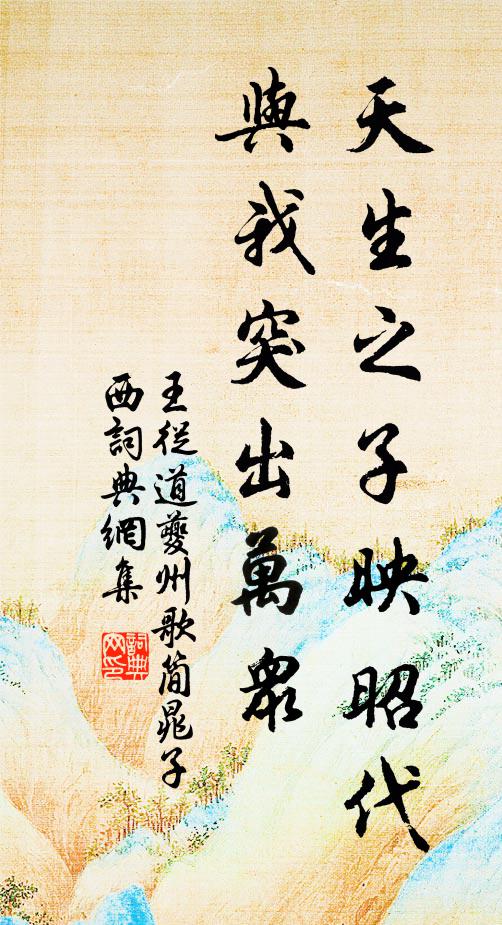 天生之子映昭代
與我突出萬眾
王從道夔州歌簡晁子
西詞典網集
詞典
网印